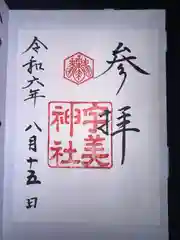 参拝
宇美
神社
令和六年
八月十五日